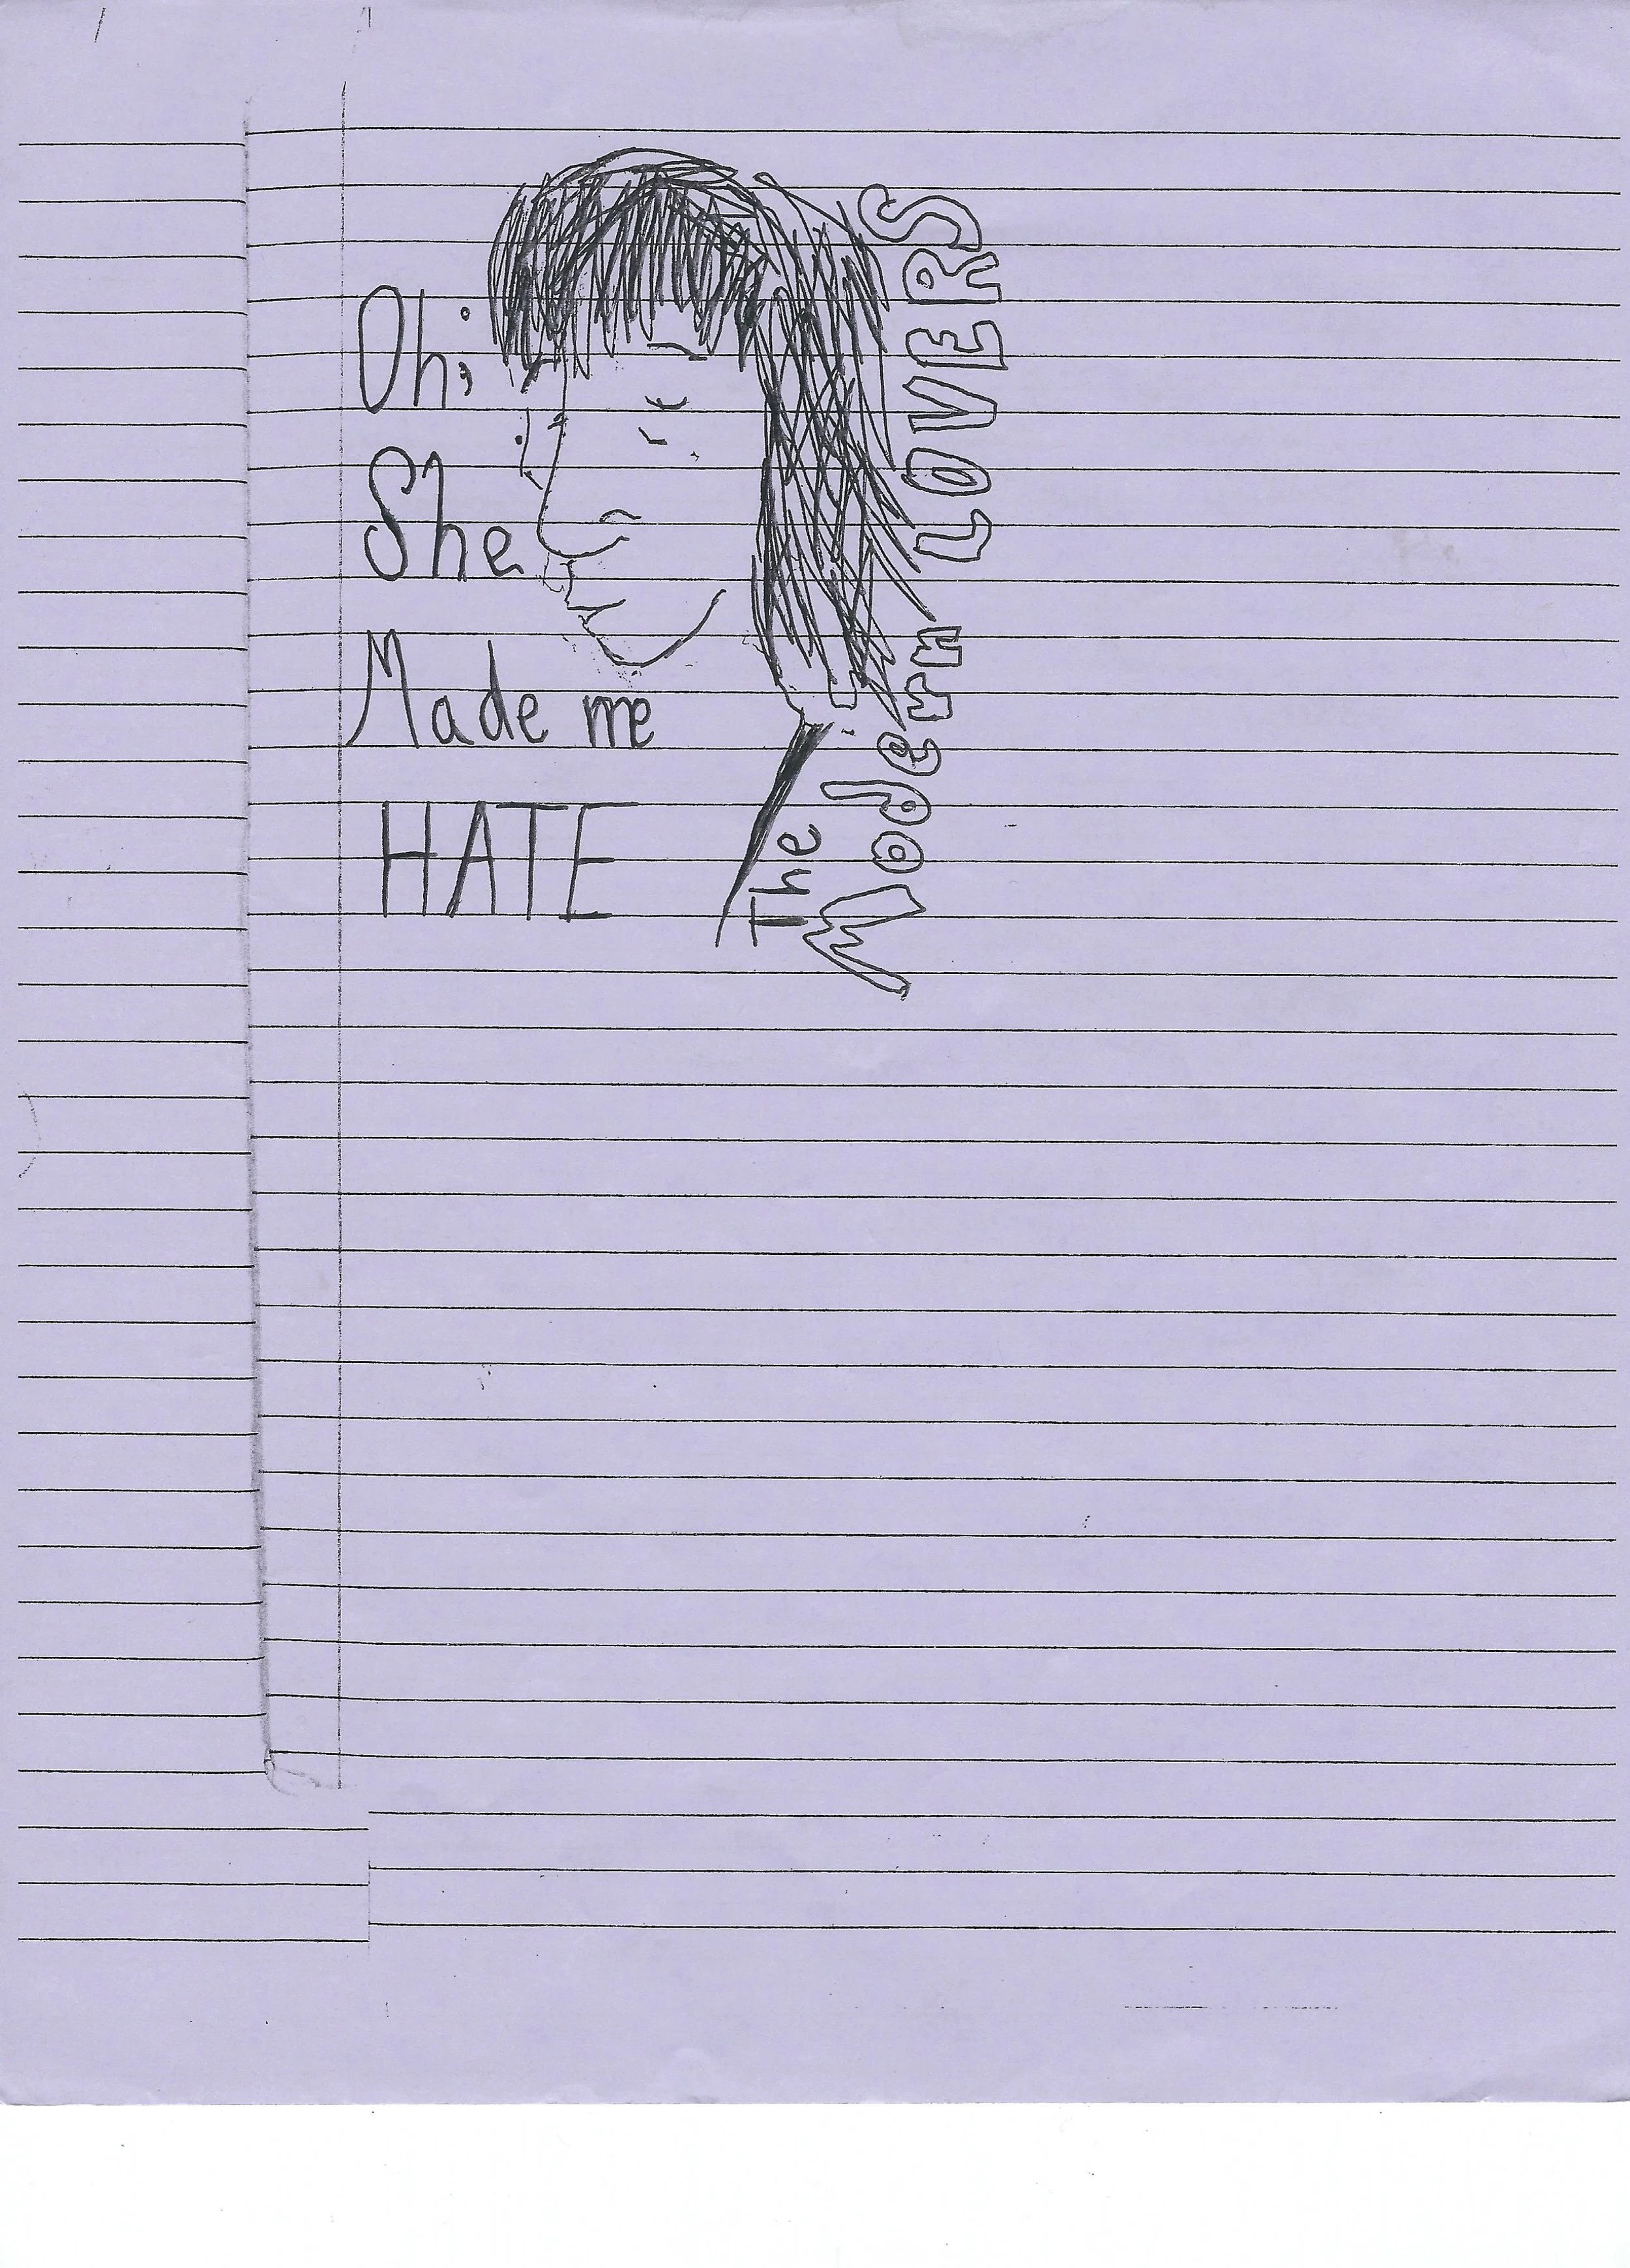 Oh;
She
Made me
HATE
The
Modern LOVERS